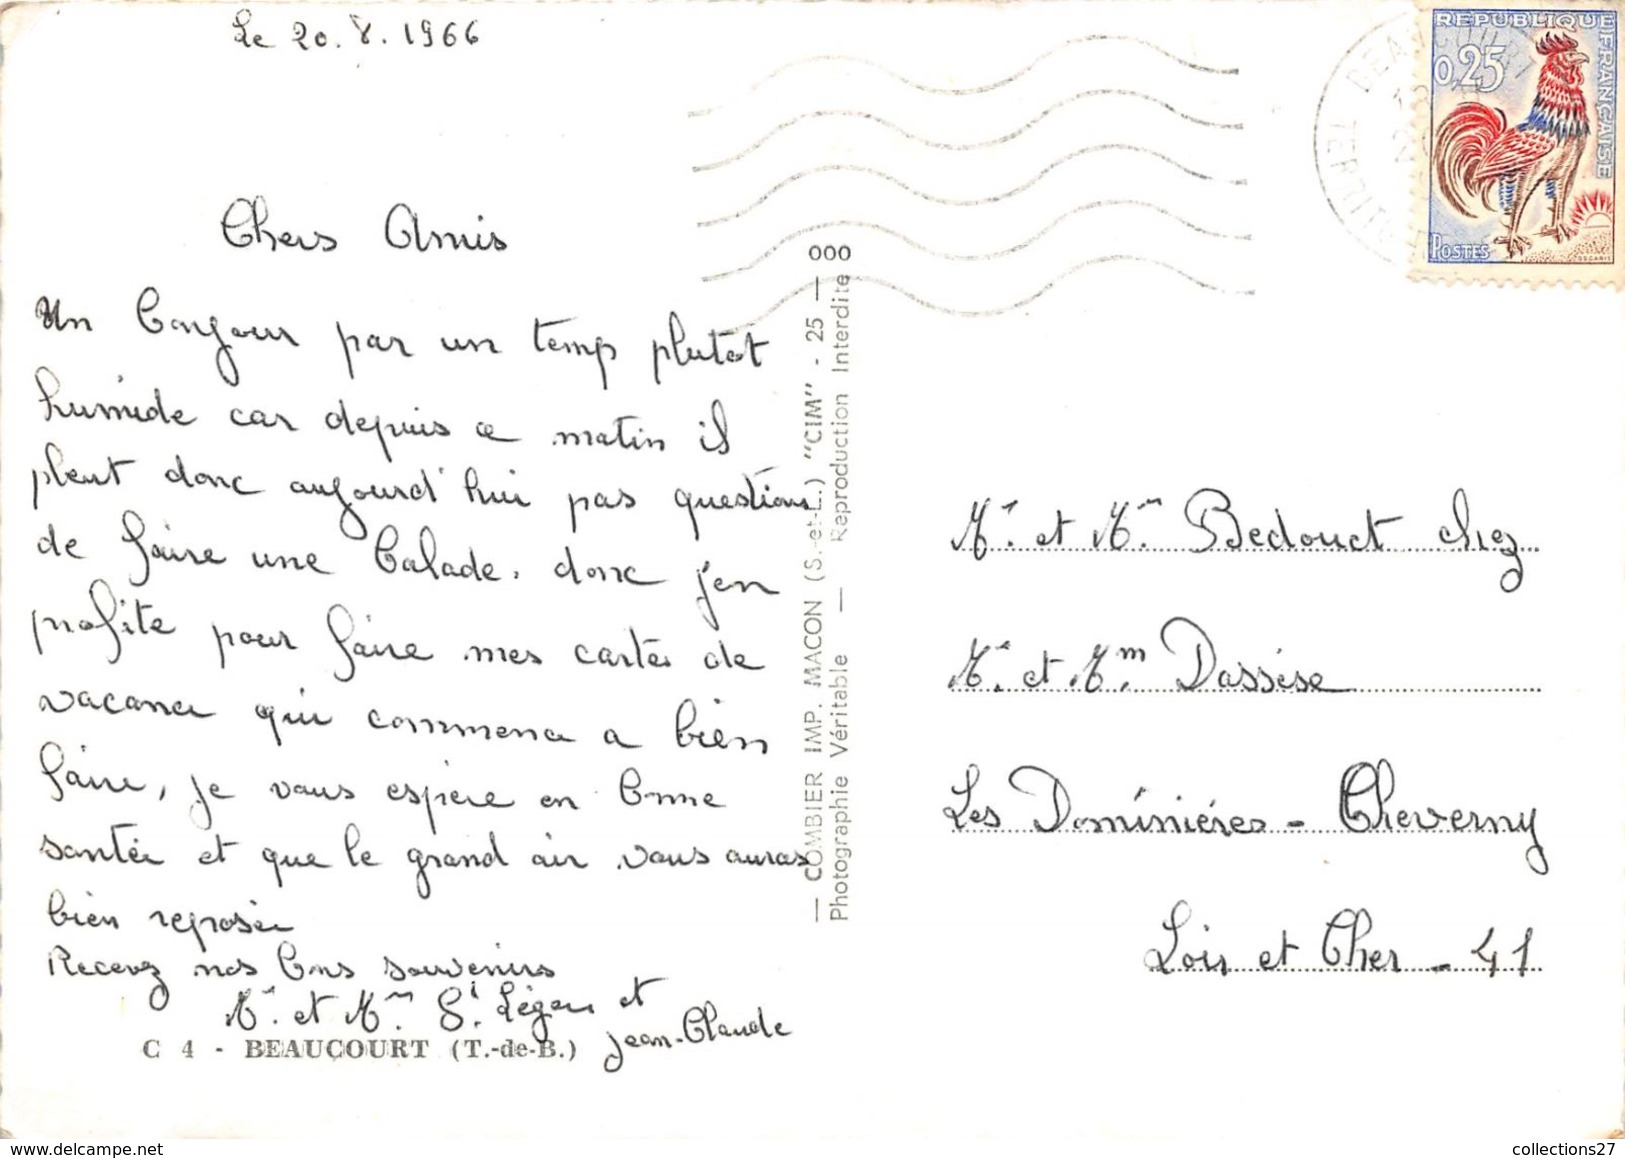 Le 20.8.1966
Chers Amis
Un Bonjour par un temp plutot
humide car depuis ce matin il
pleut donc aujourd'hui pas question
de faire une Balade, donc j'en
profite pour faire mes cartes de
vacance qui commence a bien
faire, je vous espère en Bonne
santée et que le grand air vous auras
bien reposée
Recevez nos Bons souvenirs
Mr. et Mm St Léger et
Jean-Claude
C 4 - BEAUCOURT (T.-de-B.)
— COMBIER IMP. MACON (S.-et-L.) "CIM" - 25 — 000
Photographie Véritable — Reproduction Interdite
REPUBLIQUE FRANÇAISE
0,25
POSTES
DECARIS
BEAUCOURT
Mr. et Mm Bedouet chez
Mr. et Mm. Dassèse
Les Dominiéres - Cheverny
Loir et Cher - 41
collections27